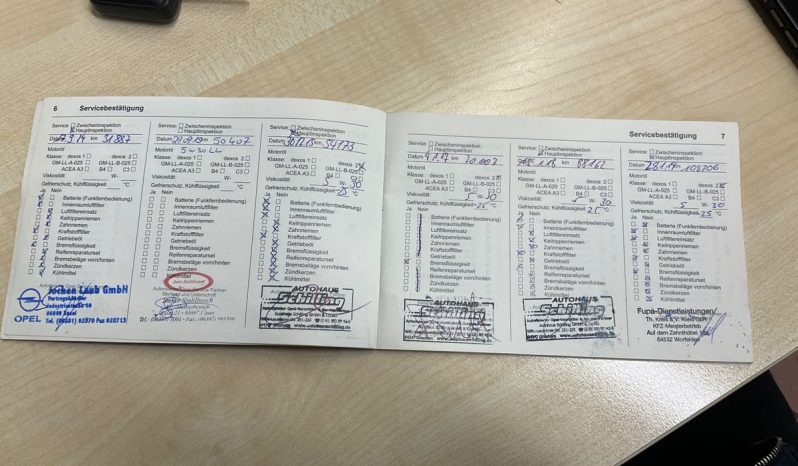 6 Servicebestätigung
Service: Zwischeninspektion
Hauptinspektion
Datum km 31887
Motoröl
Klasse: dexos 1 dexos 2
GM-LL-A-025 GM-LL-B-025
ACEA A3 B4 C3
Viskosität: W-
Gefrierschutz, Kühlflüssigk. °C
Ja Nein
Batterie (Funkfernbedienung)
Innenraumluftfilter
Luftfiltereinsatz
Keilrippenriemen
Zahnriemen
Kraftstofffilter
Getriebeöl
Bremsflüssigkeit
Reifenreparaturset
Bremsbeläge vorn/hinten
Zündkerzen
Kühlmittel
Jochen Laub GmbH
OPEL
Service: Zwischeninspektion
Hauptinspektion
Datum km 50407
Motoröl 5W30 LL
Klasse: dexos 1 dexos 2
GM-LL-A-025 GM-LL-B-025
ACEA A3 B4 C3
Viskosität: W-
Gefrierschutz, Kühlflüssigk. °C
Ja Nein
Batterie (Funkfernbedienung)
Innenraumluftfilter
Luftfiltereinsatz
Keilrippenriemen
Zahnriemen
Kraftstofffilter
Getriebeöl
Bremsflüssigkeit
Reifenreparaturset
Bremsbeläge vorn/hinten
Zündkerzen
Service: Zwischeninspektion
Hauptinspektion
Datum km 54173
Motoröl
Klasse: dexos 1 dexos 2
GM-LL-A-025 GM-LL-B-025
ACEA A3 B4 C3
Viskosität: 5 W- 30
Gefrierschutz, Kühlflüssigk. -25 °C
Ja Nein
Batterie (Funkfernbedienung)
Innenraumluftfilter
Luftfiltereinsatz
Keilrippenriemen
Zahnriemen
Kraftstofffilter
Getriebeöl
Bremsflüssigkeit
Reifenreparaturset
Bremsbeläge vorn/hinten
Zündkerzen
Kühlmittel
AUTOHAUS
Schilling
Servicebestätigung 7
Service: Zwischeninspektion
Hauptinspektion
Datum km
Motoröl
Klasse: dexos 1 dexos 2
GM-LL-A-025 GM-LL-B-025
ACEA A3 B4 C3
Viskosität: 5 W- 30
Gefrierschutz, Kühlflüssigk. -25 °C
Ja Nein
Batterie (Funkfernbedienung)
Innenraumluftfilter
Luftfiltereinsatz
Keilrippenriemen
Zahnriemen
Kraftstofffilter
Getriebeöl
Bremsflüssigkeit
Reifenreparaturset
Bremsbeläge vorn/hinten
Zündkerzen
Kühlmittel
AUTOHAUS
Schilling
Service: Zwischeninspektion
Hauptinspektion
Datum km 88162
Motoröl
Klasse: dexos 1 dexos 2
GM-LL-A-025 GM-LL-B-025
ACEA A3 B4 C3
Viskosität: 5 W- 30
Gefrierschutz, Kühlflüssigk. -25 °C
Ja Nein
Batterie (Funkfernbedienung)
Innenraumluftfilter
Luftfiltereinsatz
Keilrippenriemen
Zahnriemen
Kraftstofffilter
Getriebeöl
Bremsflüssigkeit
Reifenreparaturset
Bremsbeläge vorn/hinten
Zündkerzen
Kühlmittel
AUTOHAUS
Schilling
Service: Zwischeninspektion
Hauptinspektion
Datum 108706
Motoröl
Klasse: dexos 1 dexos 2
GM-LL-A-025 GM-LL-B-025
ACEA A3 B4 C3
Viskosität: 5 W- 30
Gefrierschutz, Kühlflüssigk. -25 °C
Ja Nein
Batterie (Funkfernbedienung)
Innenraumluftfilter
Luftfiltereinsatz
Keilrippenriemen
Zahnriemen
Kraftstofffilter
Getriebeöl
Bremsflüssigkeit
Reifenreparaturset
Bremsbeläge vorn/hinten
Zündkerzen
Kühlmittel
Fupa-Dienstleistungen
KFZ-Meisterbetrieb
Auf dem Zehnthöbel
64572 Worfelden